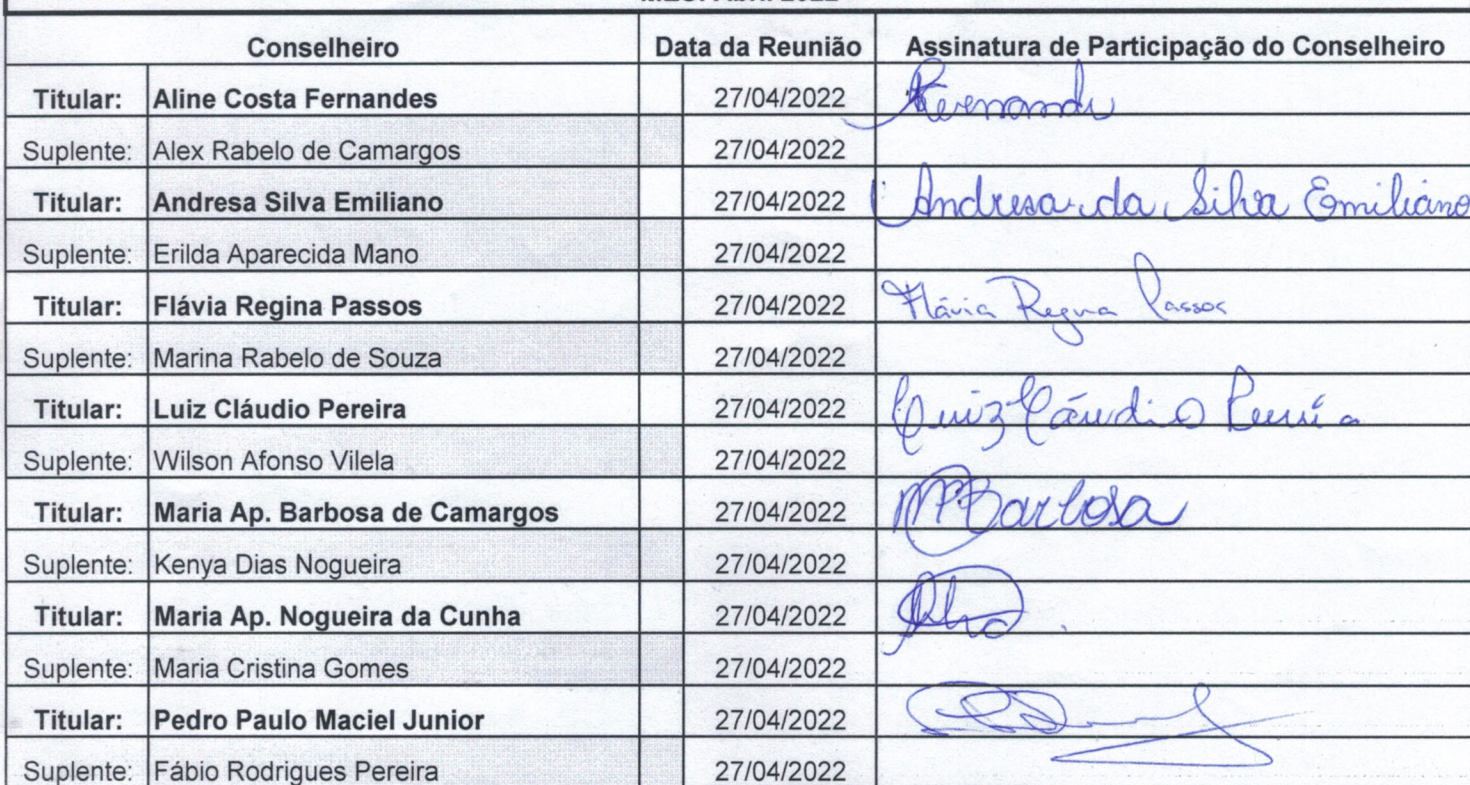 Conselheiro Data da Reunião Assinatura de Participação do Conselheiro
Titular: Aline Costa Fernandes 27/04/2022
Suplente: Alex Rabelo de Camargos 27/04/2022
Titular: Andresa Silva Emiliano 27/04/2022 Andresa da Silva Emiliano
Suplente: Erilda Aparecida Mano 27/04/2022
Titular: Flávia Regina Passos 27/04/2022 Flávia Regina Passos
Suplente: Marina Rabelo de Souza 27/04/2022
Titular: Luiz Cláudio Pereira 27/04/2022 Luiz Cláudio Pereira
Suplente: Wilson Afonso Vilela 27/04/2022
Titular: Maria Ap. Barbosa de Camargos 27/04/2022 MABarbosa
Suplente: Kenya Dias Nogueira 27/04/2022
Titular: Maria Ap. Nogueira da Cunha 27/04/2022
Suplente: Maria Cristina Gomes 27/04/2022
Titular: Pedro Paulo Maciel Junior 27/04/2022
Suplente: Fábio Rodrigues Pereira 27/04/2022